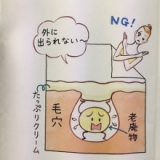 NG!
外に
出られない〜
たっぷりクリーム
毛穴
老廃物